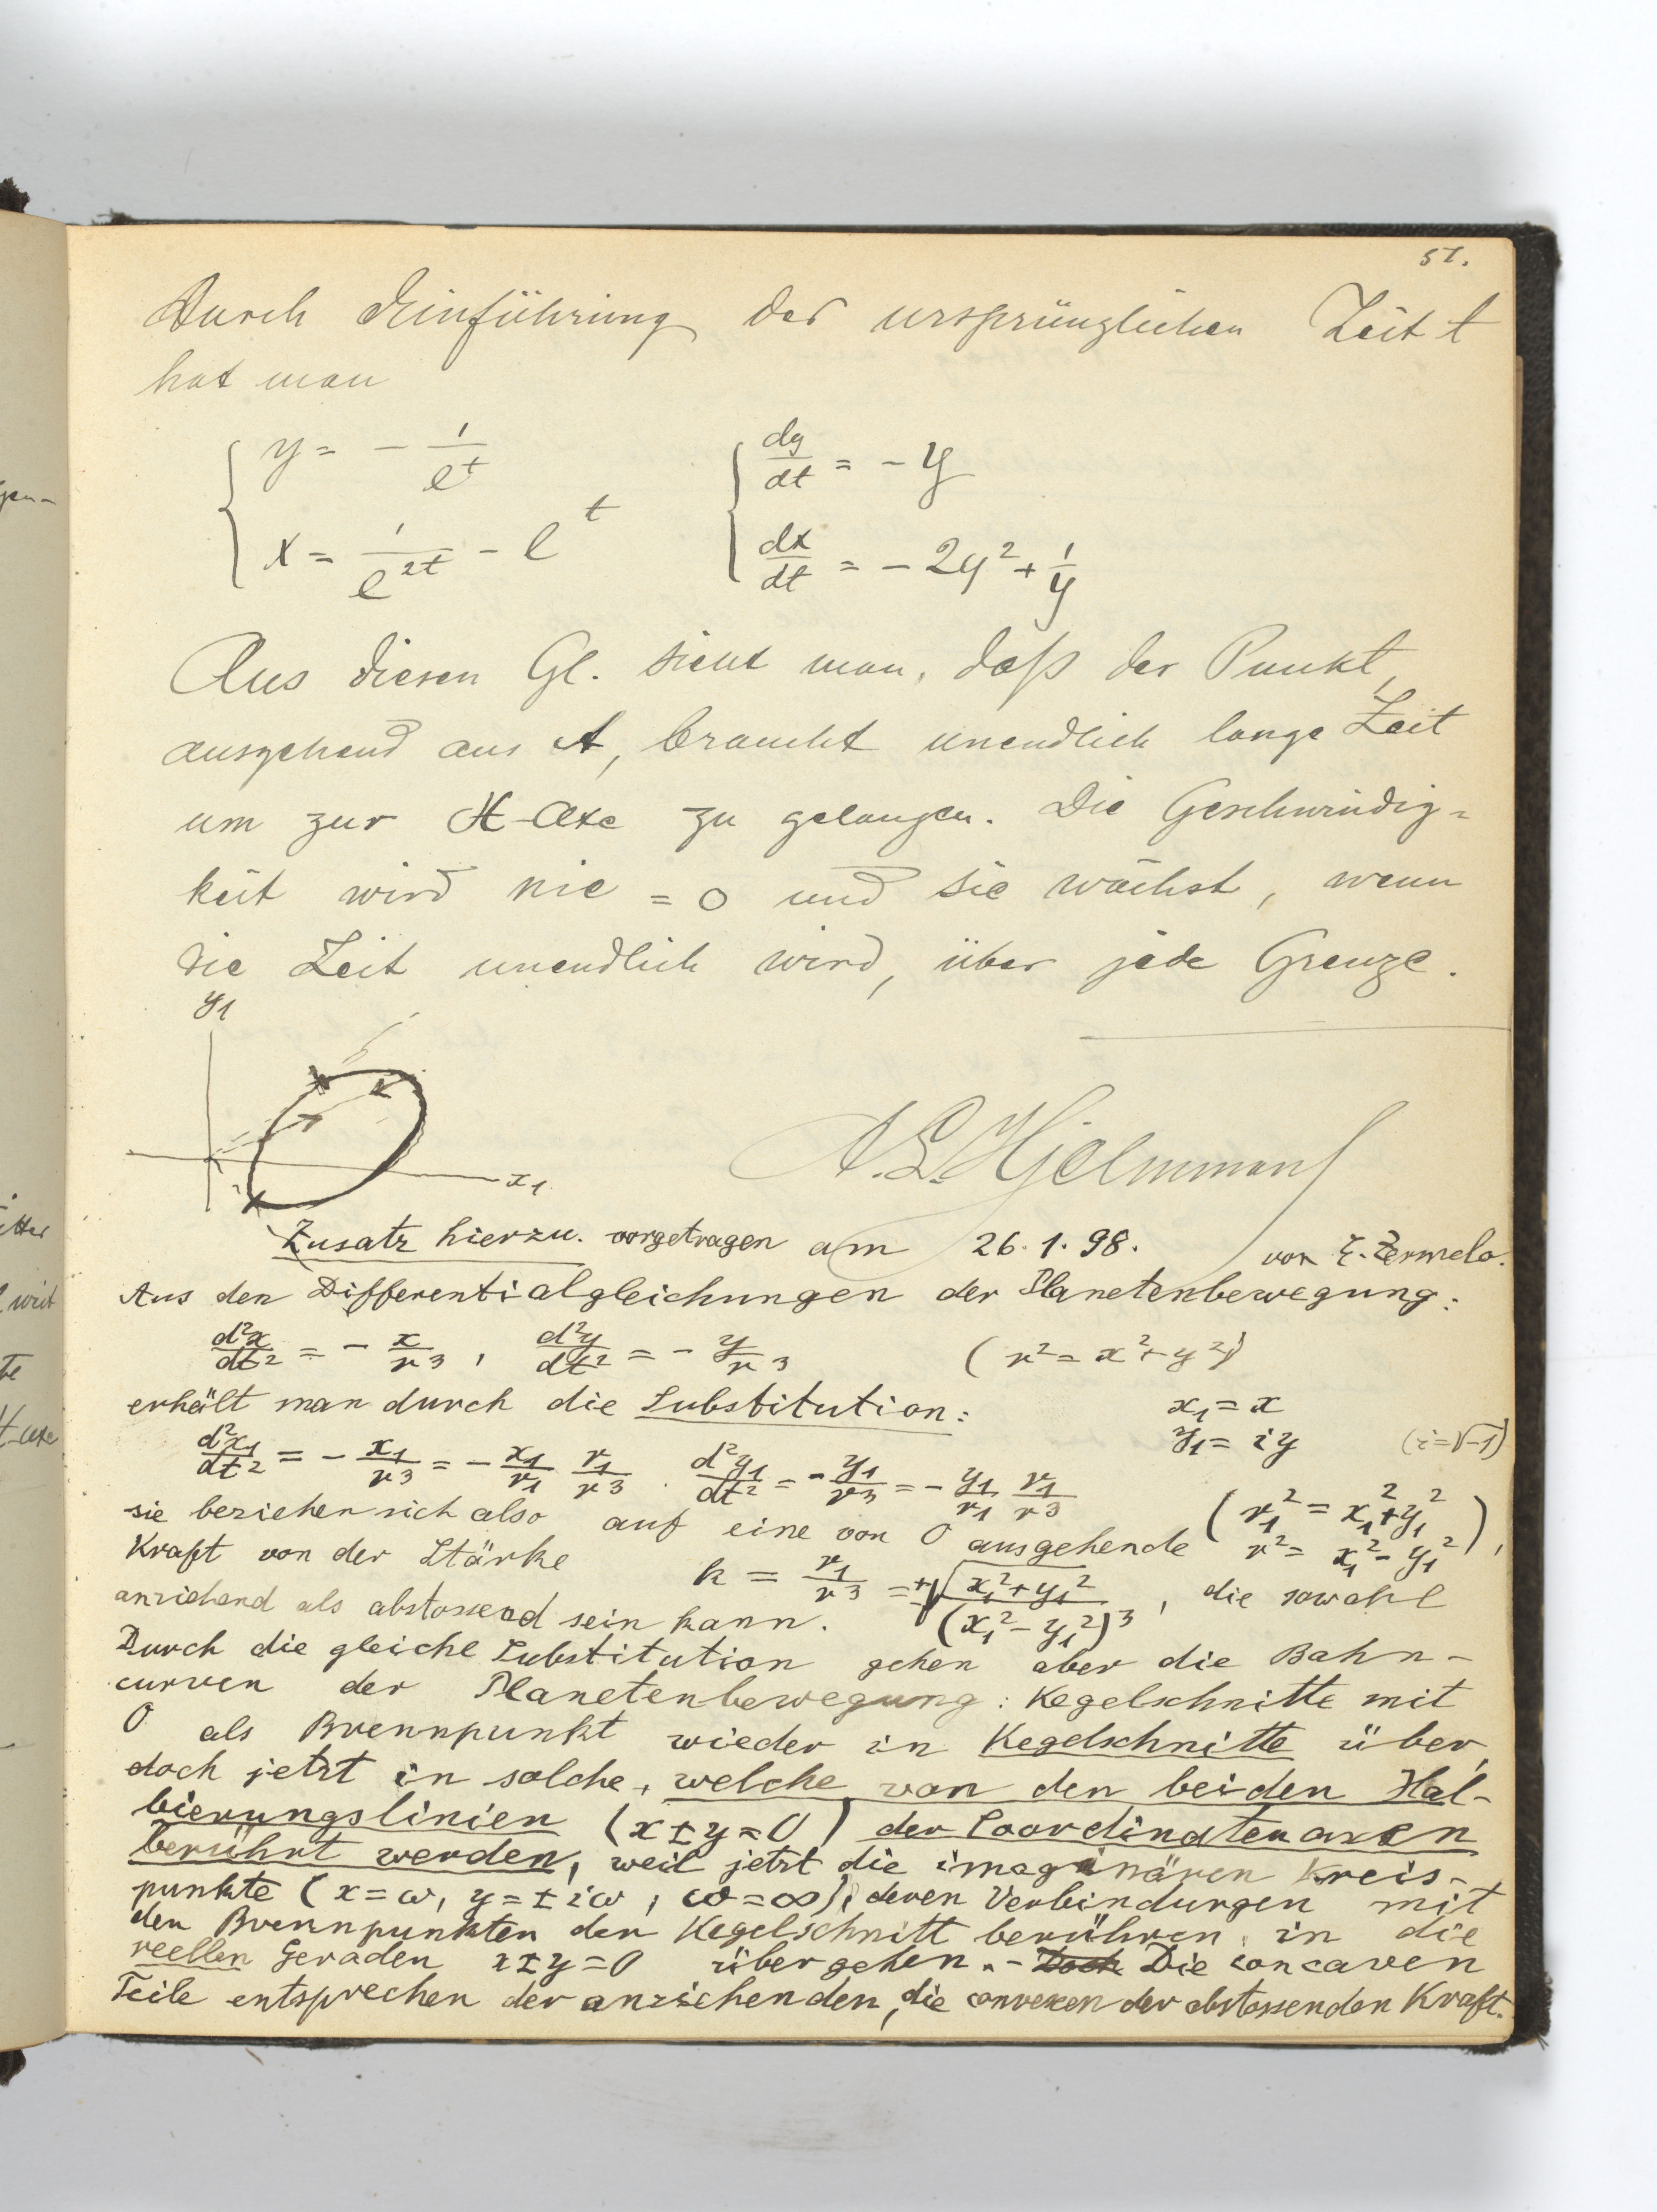 51.
Durch Einführung der ursprünglichen Zeit t
hat man
{ y = - 1/e^t { dy/dt = - y
{ x = 1/e^2t - e^t { dx/dt = - 2y² + 1/y
Aus diesen Gl. sieht man, daß der Punkt,
ausgehend aus A, braucht unendlich lange Zeit
um zur X-Axe zu gelangen. Die Geschwindig=
keit wird nie = 0 und sie wächst, wenn
die Zeit unendlich wird, über jede Grenze.
y₁
x₁
Zusatz hierzu. vorgetragen am 26.1.98. von E. Zermelo.
Aus den Differentialgleichungen der Planetenbewegung:
d²x/dt² = - x/r³, d²y/dt² = - y/r³ (r² = x² + y²)
erhält man durch die Substitution: x₁ = x
y₁ = iy (i = √-1)
d²x₁/dt² = - x₁/r³ = - x₁/r₁ r₁/r³. d²y₁/dt² = - y₁/r³ = - y₁/r₁ r₁/r³
(r₁² = x₁² + y₁²
r² = x₁² - y₁²),
sie beziehen sich also auf eine von O ausgehende
Kraft von der Stärke k = r₁/r³ = +√(x₁² + y₁²)/(x₁² - y₁²)³, die sowohl
anziehend als abstossend sein kann.
Durch die gleiche Substitution gehen aber die Bahn-
curven der Planetenbewegung: Kegelschnitte mit
O als Brennpunkt wieder in Kegelschnitte über,
doch jetzt in solche, welche von den beiden Hal-
bierungslinien (x ± y = 0) der Coordinatenaxen
berührt werden, weil jetzt die imaginären Kreis-
punkte (x = ω, y = ± iω, ω = ∞), deren Verbindungen mit
den Brennpunkten den Kegelschnitt berühren, in die
reellen Geraden x ± y = 0 übergehen. - Doch Die concaven
Teile entsprechen der anziehenden, die convexen der abstossenden Kraft.